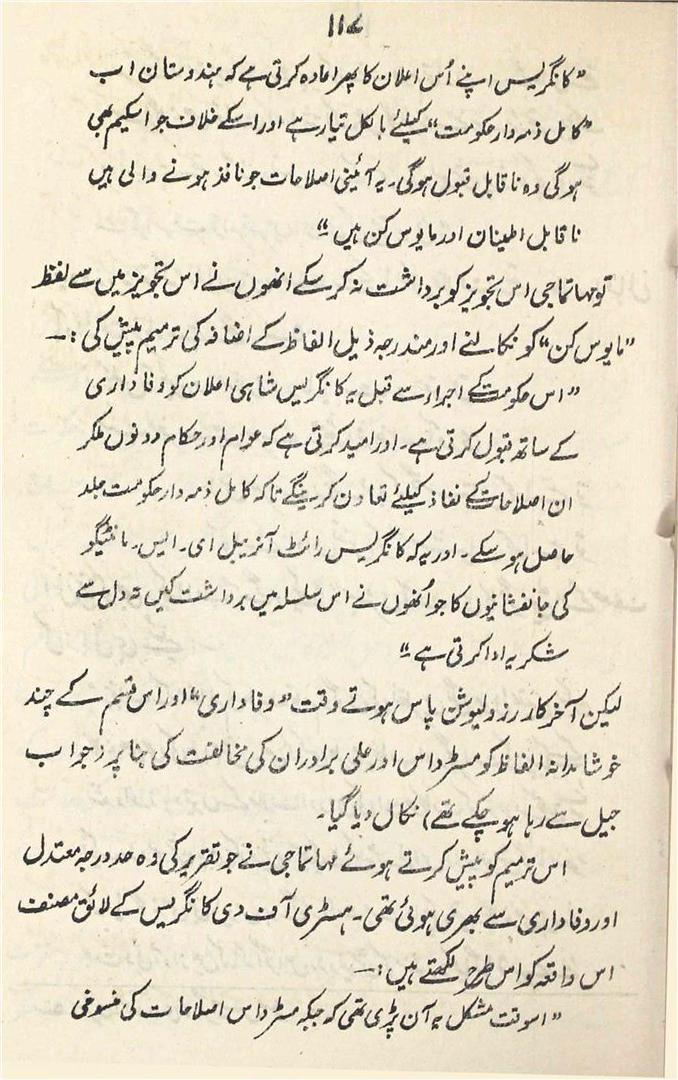 ۱۱۷
”کانگریس اپنے اُس اعلان کا پھر اعادہ کرتی ہے کہ ہندوستان اب
”کامل ذمہ دار حکومت“ کیلئے بالکل تیار ہے اور اسکے خلاف جو اسکیم بھی
ہوگی وہ ناقابل قبول ہوگی۔ یہ آئینی اصلاحات جو نافذ ہونے والی ہیں
ناقابل اطمینان اور مایوس کن ہیں“
تو مہاتما جی اس تجویز کو برداشت نہ کر سکے انھوں نے اس تجویز میں سے لفظ
”مایوس کن“ کو نکالنے اور مندرجہ ذیل الفاظ کے اضافہ کی ترمیم پیش کی :—
”اس حکومت کے اجراء سے قبل یہ کانگریس شاہی اعلان کو وفاداری
کے ساتھ قبول کرتی ہے۔ اور امید کرتی ہے کہ عوام اور حکام دونوں ملکر
ان اصلاحات کے نفاذ کیلئے تعاون کرینگے تاکہ کامل ذمہ دار حکومت جلد
حاصل ہو سکے۔ اور یہ کہ کانگریس رائٹ آنریبل ای۔ ایس۔ مانٹیگو
کی جانفشانیوں کا جو اُنھوں نے اس سلسلہ میں برداشت کیں تہ دل سے
شکریہ ادا کرتی ہے“
لیکن آخر کار رزولیوشن پاس ہوتے وقت ”وفاداری“ اور اس قسم کے چند
خوشامدانہ الفاظ کو مسٹر داس اور علی برادران کی مخالفت کی بنا پر (جو اب
جیل سے رہا ہو چکے تھے) نکال دیا گیا۔
اس ترمیم کو پیش کرتے ہوئے مہاتما جی نے جو تقریر کی وہ حد درجہ معتدل
اور وفاداری سے بھری ہوئی تھی۔ ہسٹری آف دی کانگریس کے لائق مصنف
اس واقعہ کو اس طرح لکھتے ہیں :—
”اسوقت مشکل یہ آن پڑی تھی کہ جبکہ مسٹر داس اصلاحات کی منسوخی